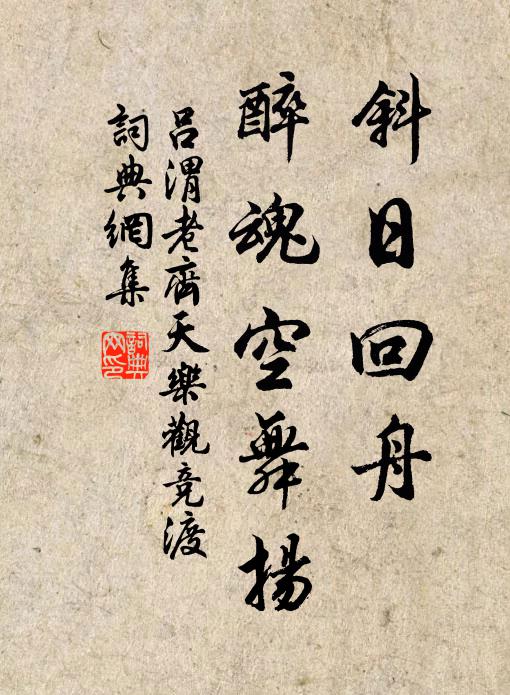 斜日回舟
醉魂空舞揚
呂渭老齊天樂觀競渡
詞典網集
詞典網印